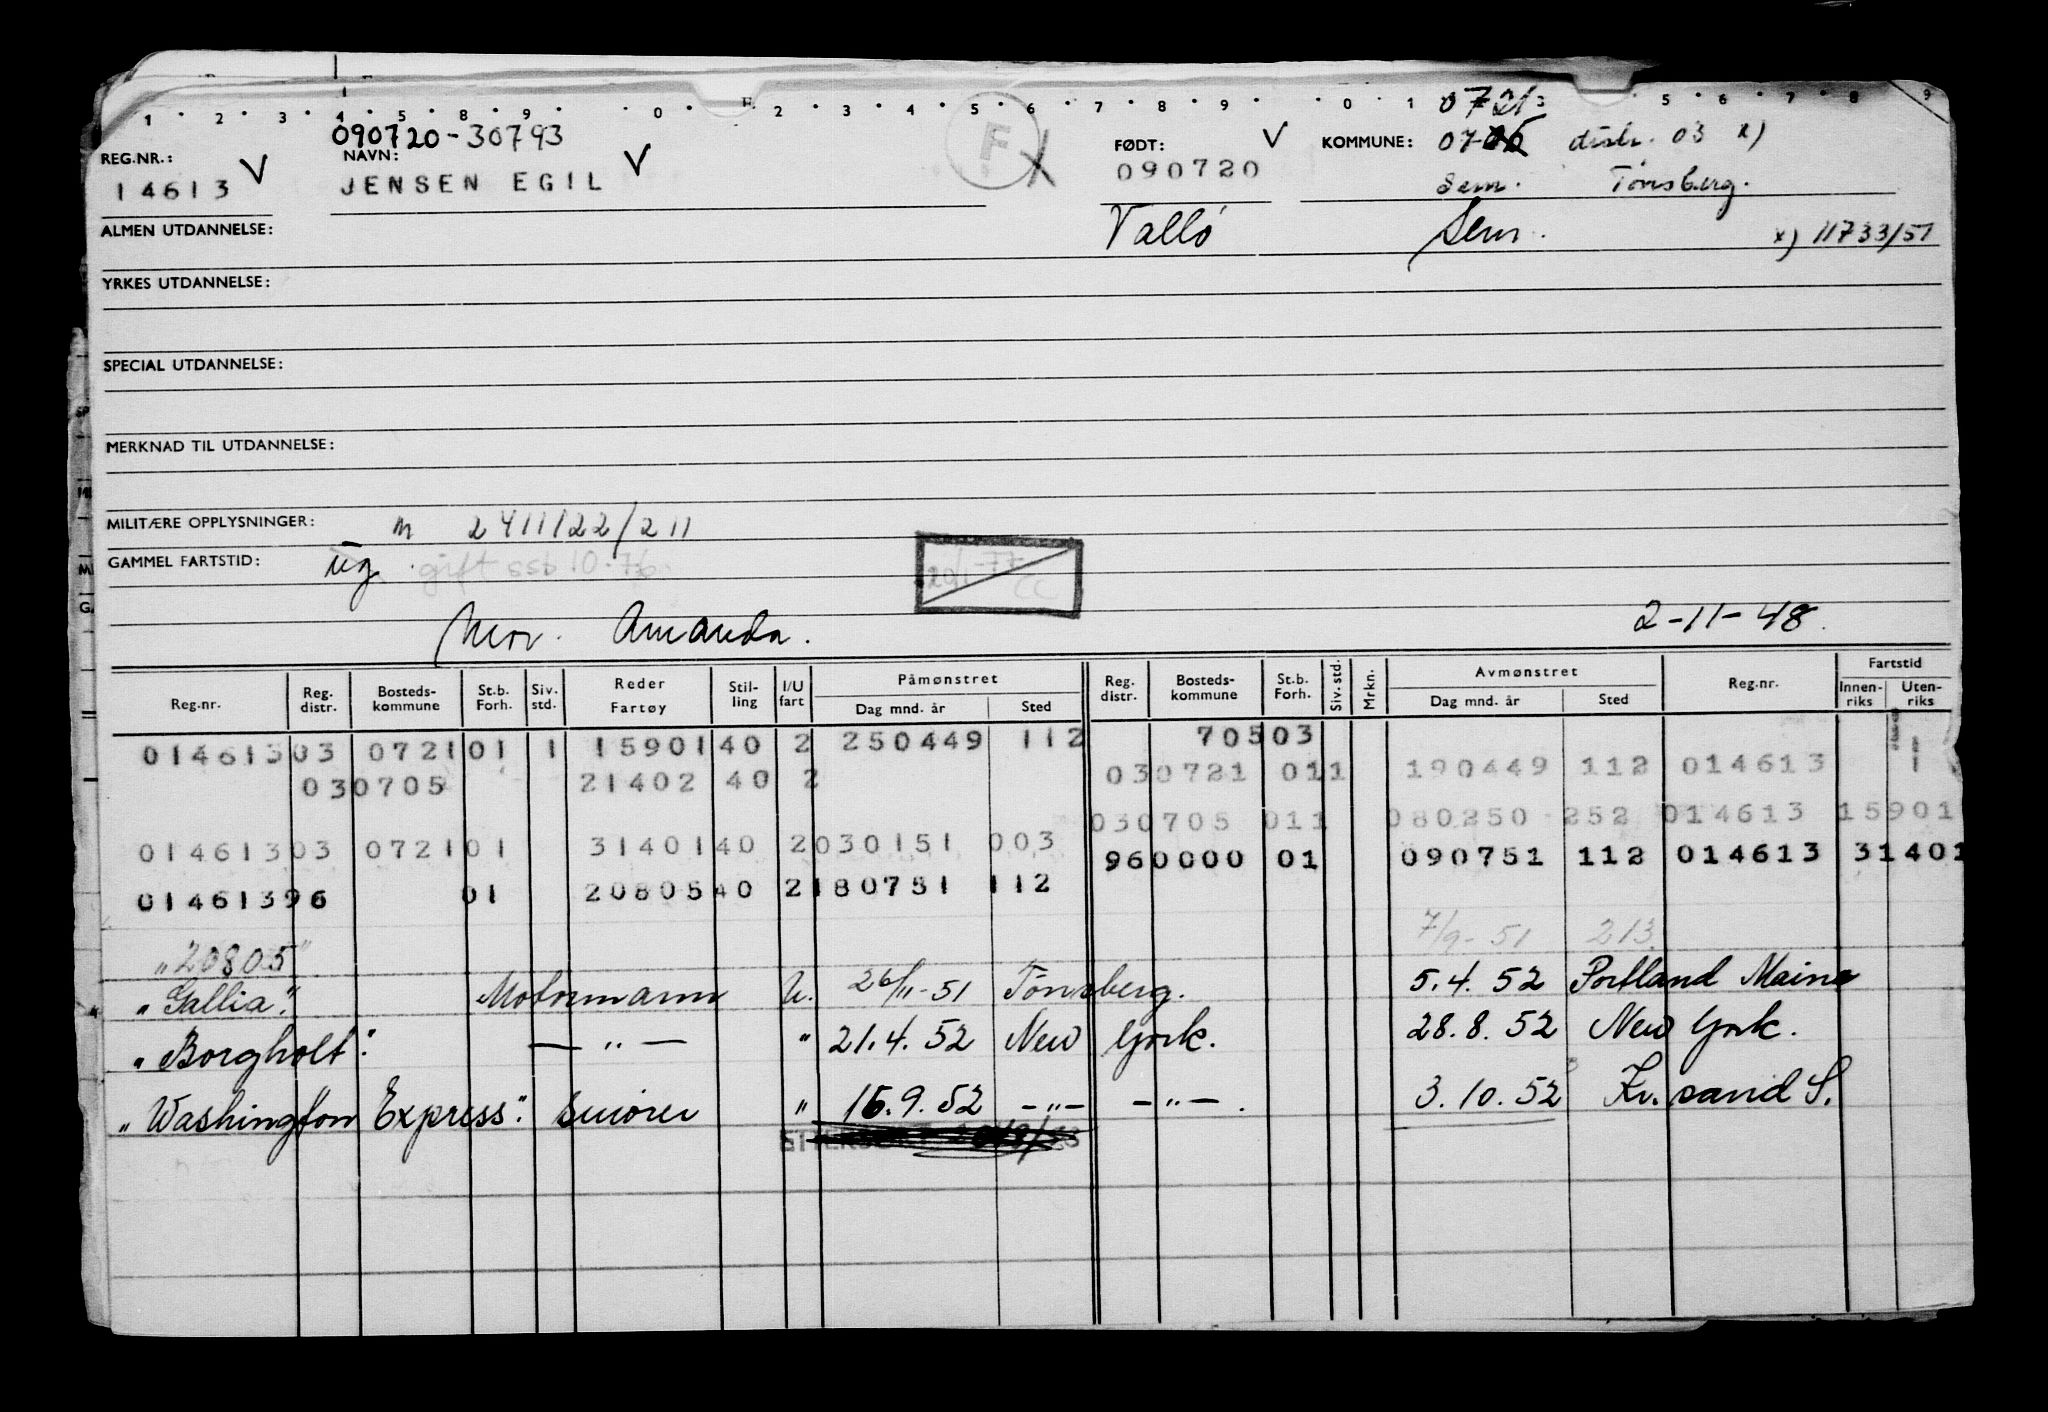 1 · 2 · 3 · 4 · 5 · 8 · 9 · · 0 · E 2 · 3 · 4 · 5 · 6 · 7 · 8 · 9 · · 0 · 1 · 3 · 5 · 6 · 7 · 8 · 9
0721
090720-30793 F FØDT: V KOMMUNE: 07-06 distr. 03 x)
REG.NR.: V NAVN: V
14613 JENSEN EGIL 090720 Sem. Tønsberg.
ALMEN UTDANNELSE: Vallø Sem. x) 11733/51
YRKES UTDANNELSE:
SPECIAL UTDANNELSE:
MERKNAD TIL UTDANNELSE:
MILITÆRE OPPLYSNINGER: M 2411122/211
GAMMEL FARTSTID: ug. gift ssb 10.76 20/1-77 CC
Mor. Amanda. 2-11-48.
Reg.nr. Reg. distr. Bosteds-kommune St.b. Forh. Siv. std. Reder Fartøy Stil-ling I/U fart Påmønstret Dag mnd. år Sted Reg. distr. Bosteds-kommune St.b. Forh. Siv. std. Mrkn. Avmønstret Dag mnd. år Sted Reg.nr. Fartstid Innen-riks Uten-riks
014613 03 0721 01 1 15901 40 2 250449 112 70503
030721 011 190449 112 014613 1
030705 21402 40 2
030705 011 080250 252 014613 15901
014613 03 0721 01 31401 40 2 030151 003
960000 01 090751 112 014613 31401
014613 96 01 20805 40 2 180751 112
"20805" 7/9-51 213
"Gallia". Motormann U. 26/11-51 Tønsberg. 5.4.52 Portland Maine
"Borgholt". — " — " 21.4.52 New York. 28.8.52 New York.
"Washington Express". Smører " 16.9.52 -"- -"-. 3.10.52 Kr.sand S.